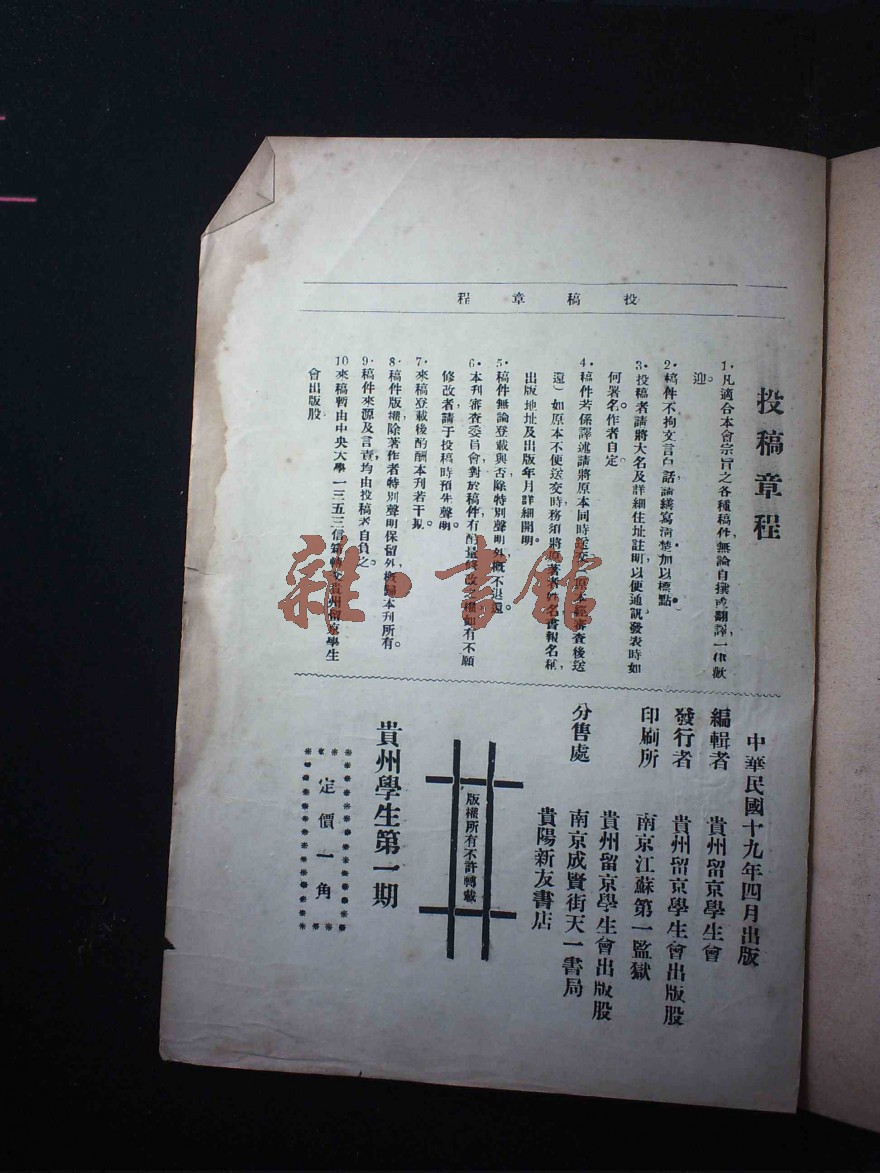 程章稿投
投稿章程
1.凡適合本會宗旨之各種稿件,無論自撰或翻譯,一律歡
迎。
2.稿件不拘文言白話,請繕寫清楚,加以標點。
3.投稿者請將大名及詳細住址註明以便通訊發表時如
何署名。作者自定。
4.稿件若係譯述請將原本同時
審查後送
還)如原本不便送交時務須將原著者姓名書報名稱,
出版地址及出版年月詳細開明。
5.稿件無論登載與否除特別聲明外,概不退還。
6.本刊審查委員會對於稿件,有酌量修改之權如有不願
修改者,請于投稿時預先聲明。
7.來稿登載後酌酬本刊若干規。
8.稿件版權,除著作者特別聲明保留外,概歸本刊所有。
9.稿件來源及言責,均由投稿者自負之。
10來稿暫由中央大學一三五三信箱轉交貴州留京學生
會出版股
中華民國十九年四月出版
編輯者 貴州留京學生會
發行者 貴州留京學生會出版股
印刷所 南京江蘇第一監獄
貴州留京學生會出版股
分售處 南京成賢街天一書局
貴陽新友書店
版權所有不許轉載
貴州學生第一期
定價一角
雜·書館